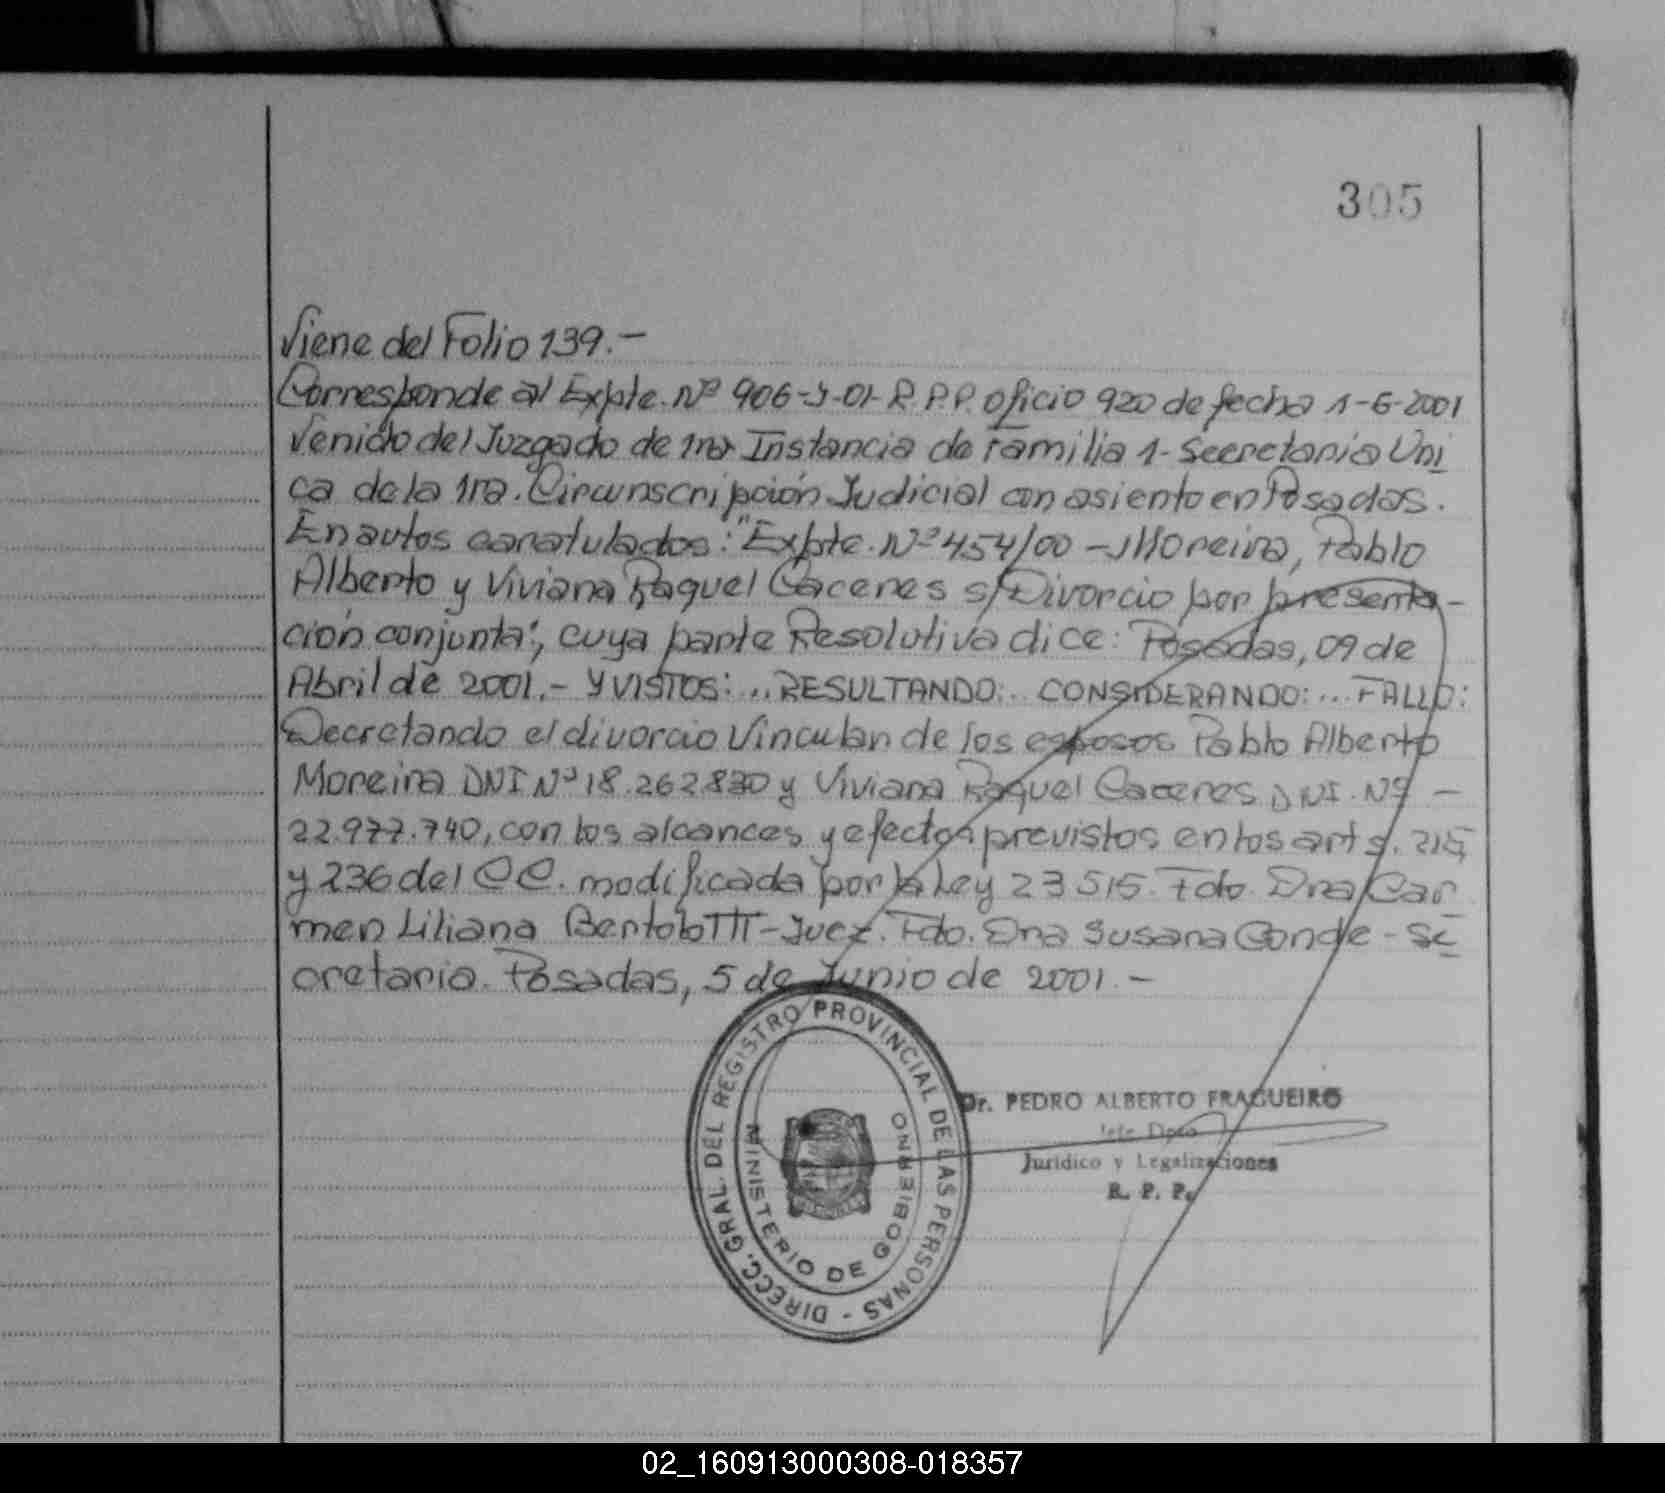 305
Viene del Folio 139.-
Corresponde al Expte. Nº 906-J-01- R.P.P. oficio 920 de fecha 1-6-2001
Venido del Juzgado de 1ra Instancia de Familia 1- Secretaria Uni
ca de la 1ra. Circunscripción Judicial con asiento en Posadas.
En autos caratulados: "Expte. Nº 454/00 - Moreira, Pablo
Alberto y Viviana Raquel Caceres s/Divorcio por presenta-
ción conjunta", cuya parte Resolutiva dice: Posadas, 09 de
Abril de 2001.- Y VISTOS:... RESULTANDO:.. CONSIDERANDO:... FALLO:
Decretando el divorcio Vincular de los esposos Pablo Alberto
Moreira DNI Nº 18.262.830 y Viviana Raquel Caceres DNI. Nº -
22.977.740, con los alcances y efectos previstos en los arts. 215
y 236 del CC. modificada por la Ley 23515. Fdo. Dra Car
men Liliana Bertolotti - Juez. Fdo. Dra Susana Conde - Se
cretaria. Posadas, 5 de Junio de 2001.-
DIRECC. GRAL. DEL REGISTRO PROVINCIAL DE LAS PERSONAS -
MINISTERIO DE GOBIERNO
Dr. PEDRO ALBERTO FRAGUEIRO
Jefe Dpto
Jurídico y Legalizaciones
R. P. P.
02_160913000308-018357